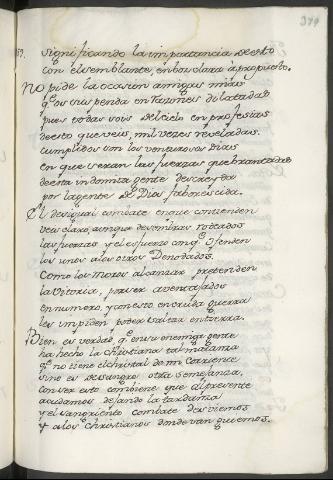 significando la importancia de esto
con el semblante, en boz clara a proposito.
No pide la ocasion amigas mias
q̃ os suspenda en razones dilatadas
pues todas sois del cielo en profesias
de esto que veis, mil vezes reveladas.
cumplidos son los venturosos dias
en que seran las fuerzas quebrantadas
de esta indomita gente descreyda
por la gente de Dios faborescida.
El desigual combate en que contienden
veis claro, aunque de sombras rodeados
las fuerzas y el esfuerzo con q̃ ofenden
los unos a los otros Denodados.
Como los moros alcanzar pretenden
la Vitoria, por ser aventajados
en numero, y con esto en cruda guerra
les impiden poder saltar en tierra.
Bien es verdad, q̃ en su enemiga gente
ha hecho la christiana tal matanza
q̃ no tiene el christal de mi corriente
sino es de sangre otra semejanza.
con ver esto combiene que al presente
acudamos dejando la tardanza
y el sangriento combate desviemos
y a los christianos donde van guiemos.